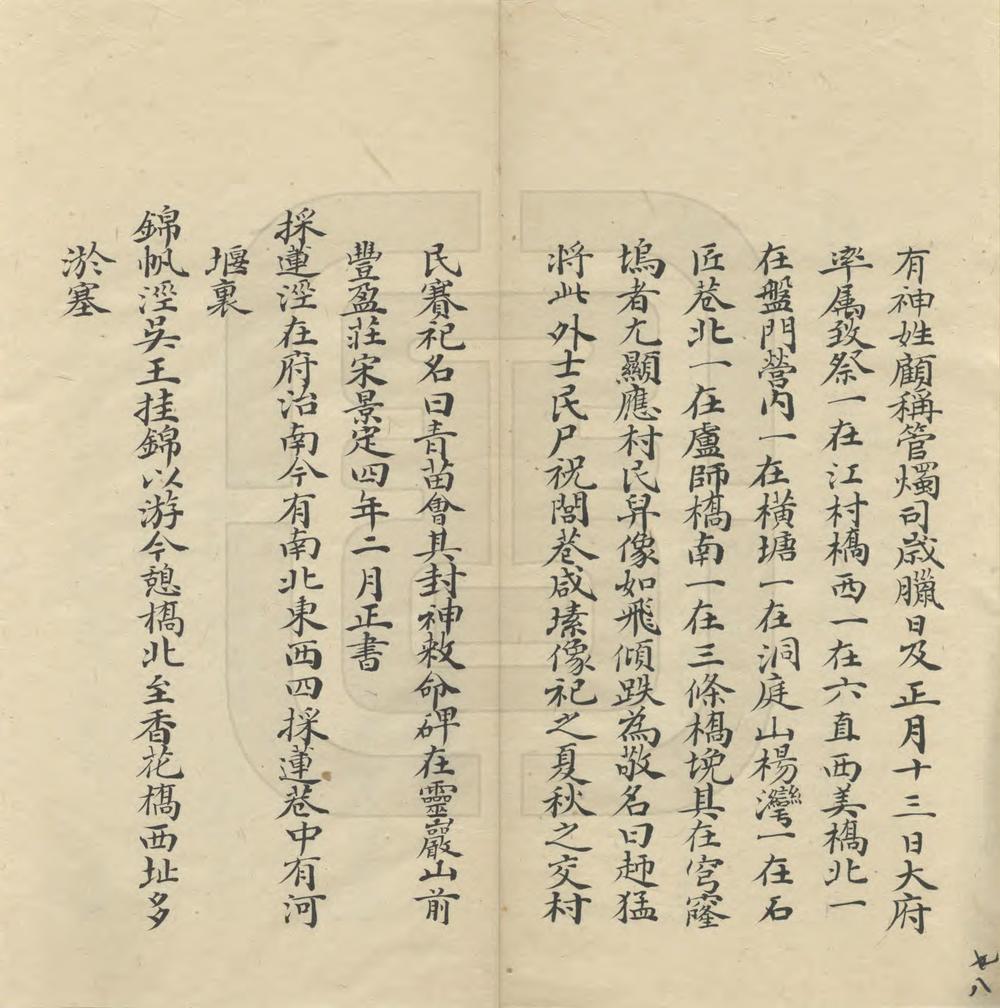 有神姓顧稱管燭司歲臘日及正月十三日大府
率属致祭一在江村橋西一在六直西美橋北一
在盤門營内一在横塘一在洞庭山楊灣一在石
匠巷北一在盧師橋南一在三條橋堍其在穹窿
塢者尢顯應村民舁像如飛傾跌為敬名曰趂猛
將此外士民尸祝閭巷咸塐像祀之夏秋之交村
民賽祀名曰青苗會其封神敕命碑在靈巖山前
豐盈莊宋景定四年二月正書
採蓮涇在府治南今有南北東西四採蓮巷中有河
堰裏
錦帆涇吳王挂錦以游今憩橋北至香花橋西址多
淤塞
七八